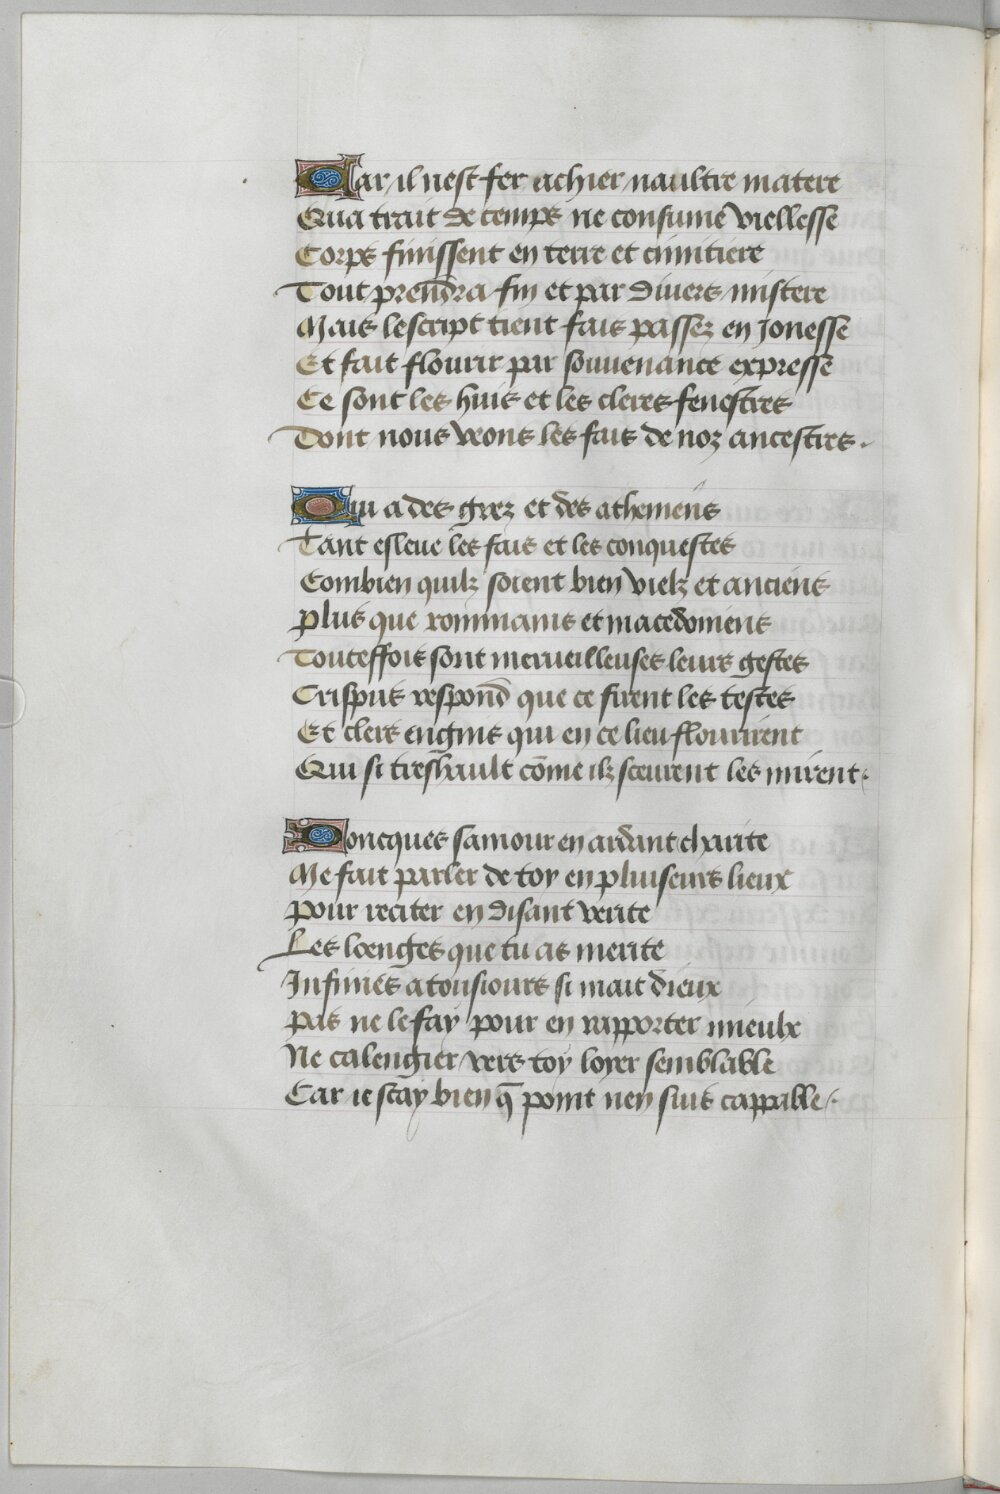 Car il nest fer achier naultre matere
Qua trait de temps ne consume viellesse
Corps finissent en terre et cimitiere
Tout prendra fin et par divers mistere
Mais lescript tient fais passez en jonesse
Et fait flourir par souvenance expresse
Ce sont les huis et les cleres fenestres
Dont nous veons les fais de noz ancestres.

Qui a des grez et des atheniens
Tant esleve les fais et les conquestes
Combien quilz soient bien vielz et anciens
Plus que rommains et macedoniens
Touteffois sont merveilleuses leurs gestes
Crispus respond que ce firent les testes
Et clers engins qui en ce lieu flourirent
Qui si treshault cōme ilz sceurent les mirent.

Doncques samour en ardant charite
Me fait parler de toy en pluiseurs lieux
Pour reciter en disant verite
Les loenges que tu as merite
Infinies a tousiours si mait dieux
Pas ne le fay pour en rapporter mieulx
Ne calengier vers toy loyer semblable
Car ie scay bien q̄ point nen suis cappable.